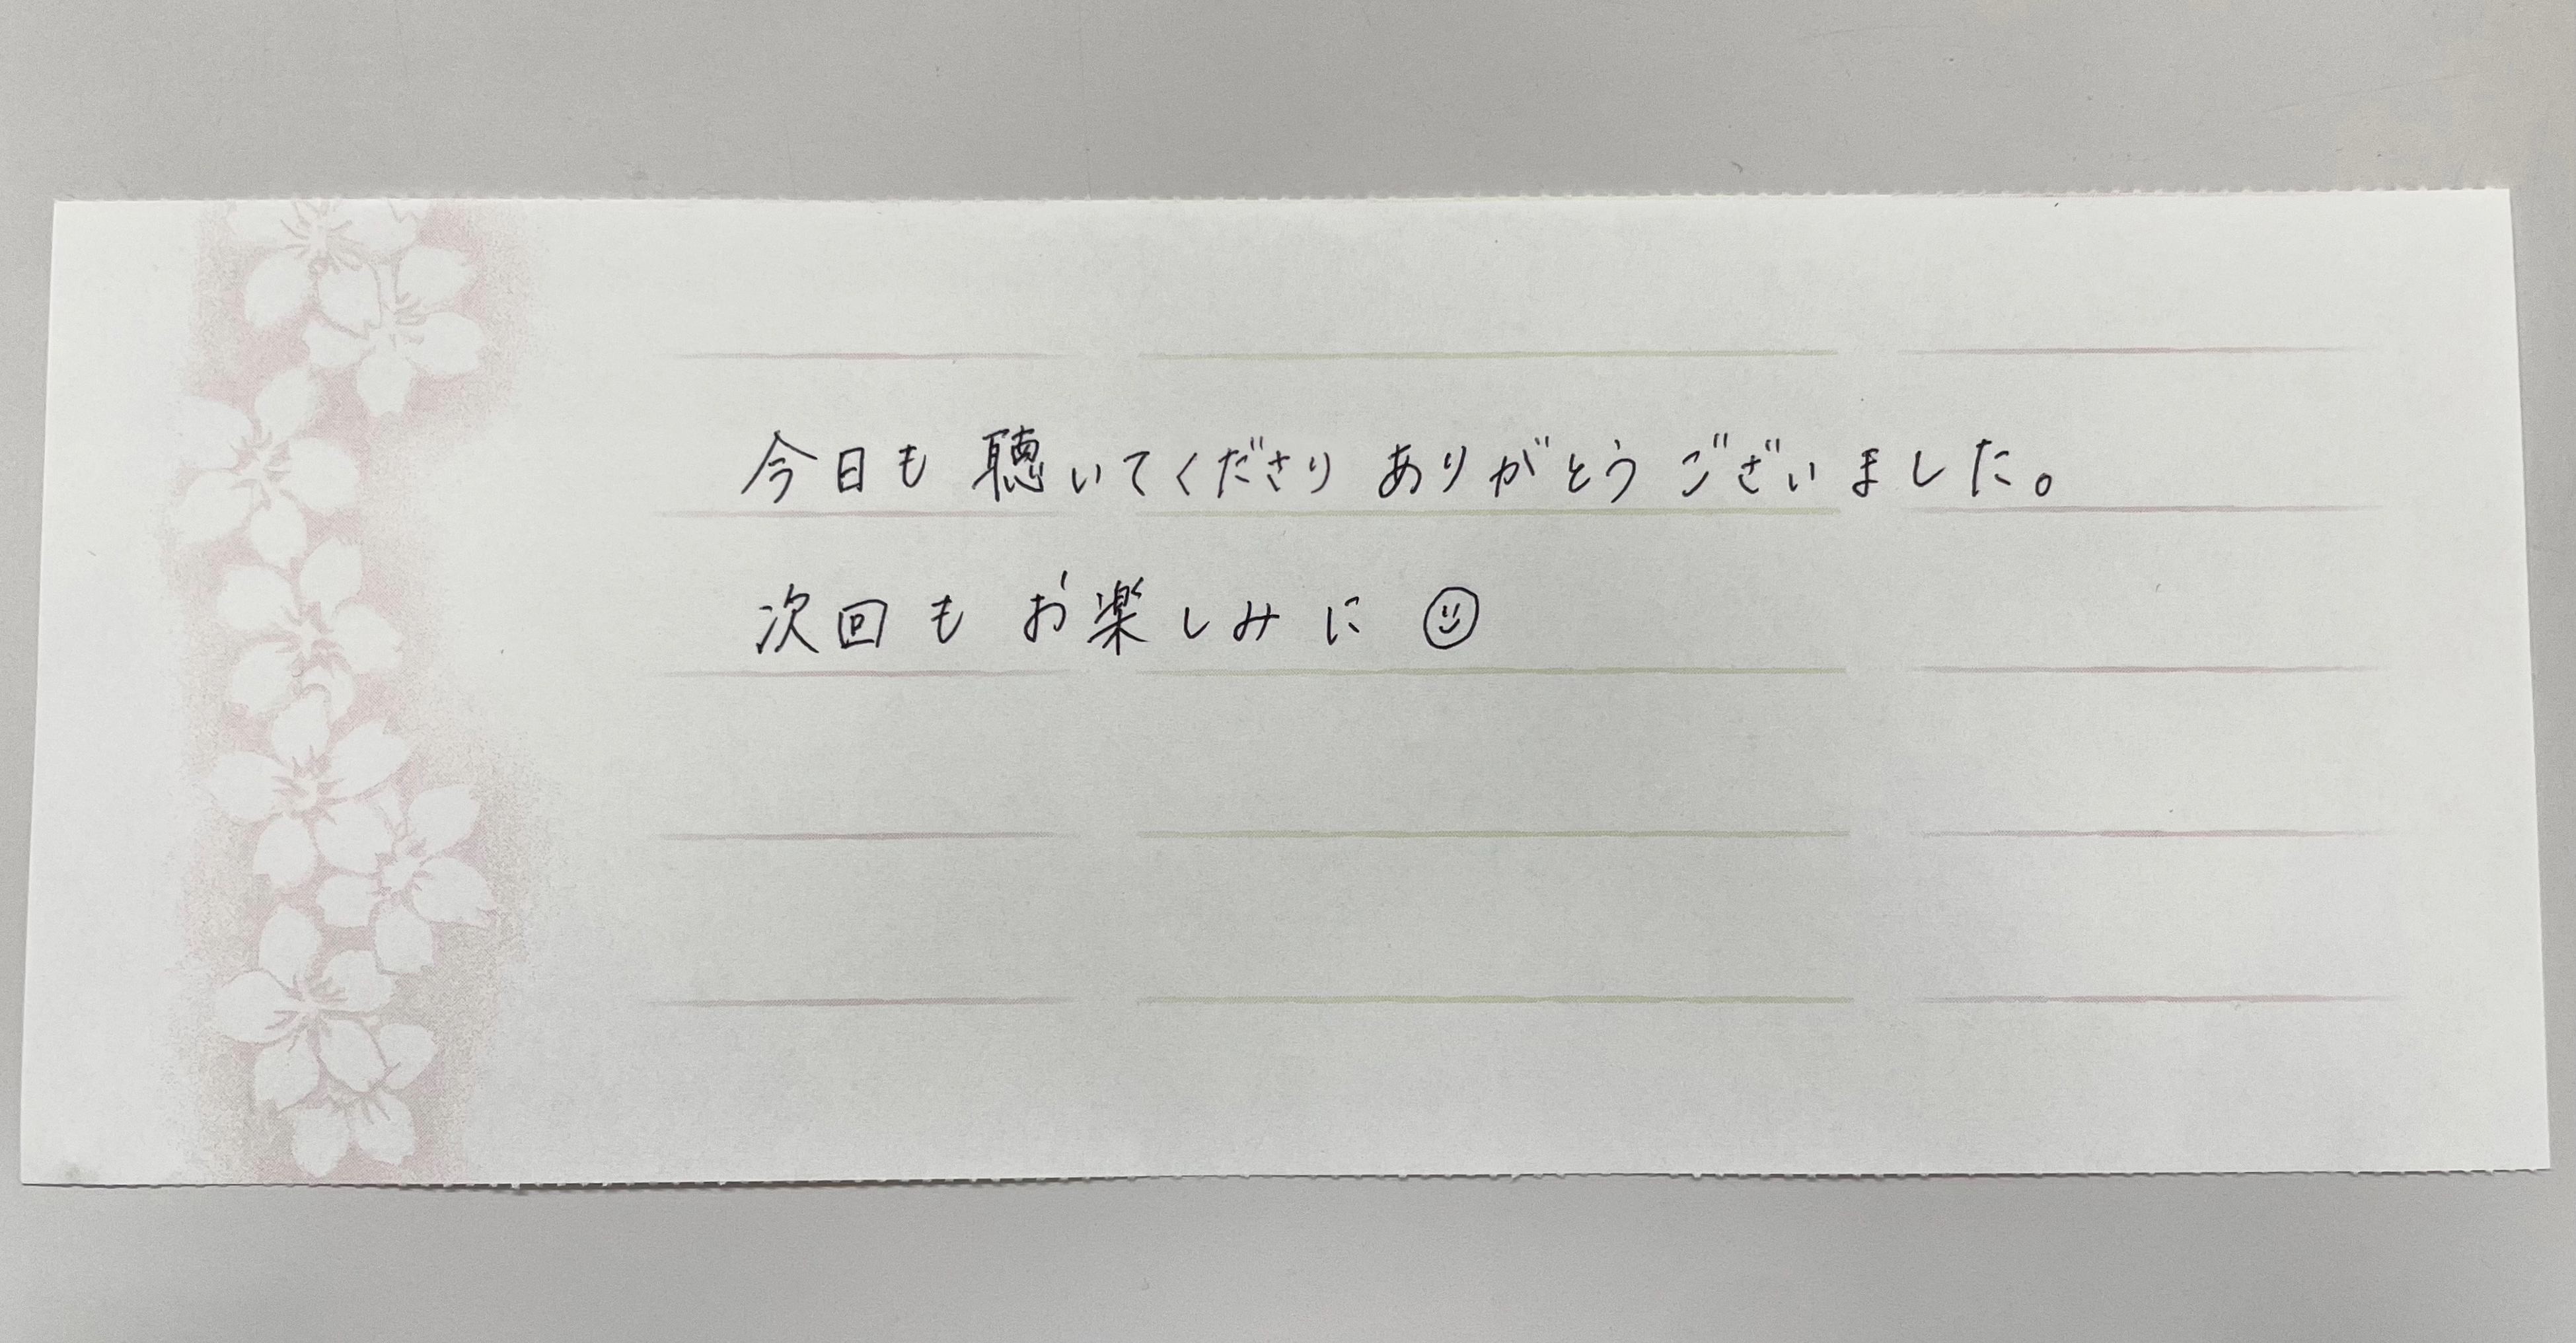 今日も聴いてくださりありがとうございました。
次回もお楽しみに☺